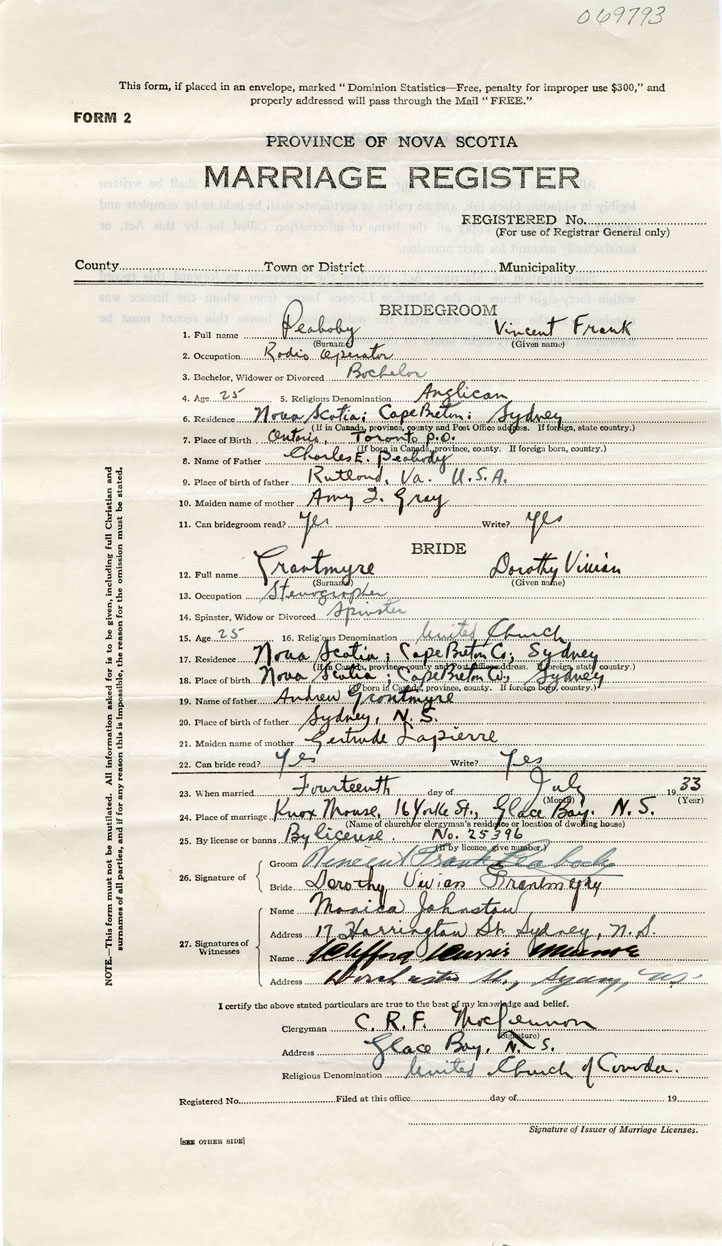 069793
This form, if placed in an envelope, marked "Dominion Statistics—Free, penalty for improper use $300," and
properly addressed will pass through the Mail "FREE."
FORM 2
PROVINCE OF NOVA SCOTIA
MARRIAGE REGISTER
REGISTERED No.
(For use of Registrar General only)
County Town or District Municipality
BRIDEGROOM
1. Full name Peabody Vincent Frank
(Surname) (Given name)
2. Occupation Radio Operator
3. Bachelor, Widower or Divorced Bachelor
4. Age 25 5. Religious Denomination Anglican
6. Residence Nova Scotia; Cape Breton; Sydney
(If in Canada, province, county and Post Office address. If foreign, state country.)
7. Place of Birth Ontario, Toronto P.O.
(If born in Canada, province, county. If foreign born, country.)
8. Name of Father Charles E. Peabody
9. Place of birth of father Rutland, Va. U.S.A.
10. Maiden name of mother Amy I. Gray
11. Can bridegroom read? Yes Write? Yes
BRIDE
12. Full name Grantmyre Dorothy Vivian
(Surname) (Given name)
13. Occupation Stenographer
14. Spinster, Widow or Divorced Spinster
15. Age 25 16. Religious Denomination United Church
17. Residence Nova Scotia; Cape Breton Co; Sydney
(If in Canada, province, county and Post Office address. If foreign, state country.)
18. Place of birth Nova Scotia; Cape Breton Co; Sydney
(If born in Canada, province, county. If foreign born, country.)
19. Name of father Andrew Grantmyre
20. Place of birth of father Sydney, N.S.
21. Maiden name of mother Gertrude Lapierre
22. Can bride read? Yes Write? Yes
23. When married Fourteenth day of July 1933
(Month) (Year)
24. Place of marriage Knox Manse, 16 Yorke St., Glace Bay. N.S.
(Name of church/or clergyman's residence or location of dwelling house)
25. By license or banns By license. No. 25396
(If by licence, give number.)
26. Signature of
Groom Vincent Frank Peabody
Bride Dorothy Vivian Grantmyre
27. Signatures of Witnesses
Name Monica Johnston
Address 17 Harrington St. Sydney, N.S.
Name Clifford Munroe
Address Dorchester St., Sydney, N.S.
I certify the above stated particulars are true to the best of my knowledge and belief.
Clergyman C. R. F. MacLennon
(Signature)
Address Glace Bay, N.S.
Religious Denomination United Church of Canada.
Registered No. Filed at this office day of 19
Signature of Issuer of Marriage Licenses.
[SEE OTHER SIDE]
NOTE.—This form must not be mutilated. All information asked for is to be given, including full Christian and
surnames of all parties, and if for any reason this is impossible, the reason for the omission must be stated.